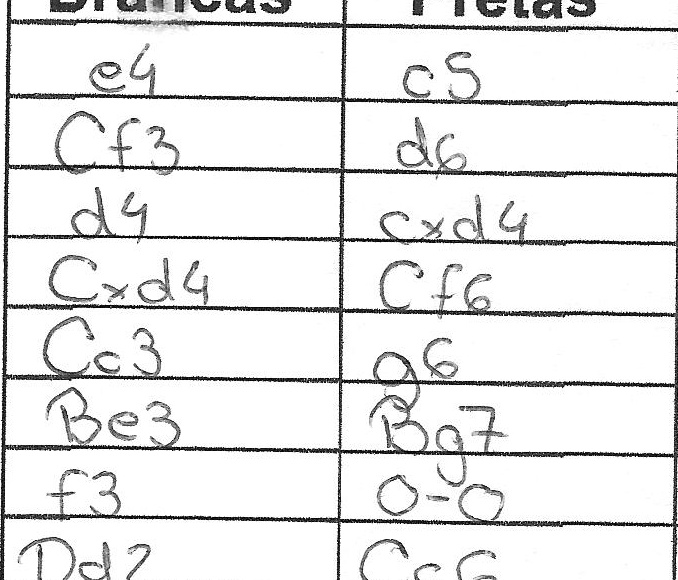 Brancas Pretas
e4 c5
Cf3 d6
d4 cxd4
Cxd4 Cf6
Cc3 g6
Be3 Bg7
f3 0-0
Dd2 Cc6